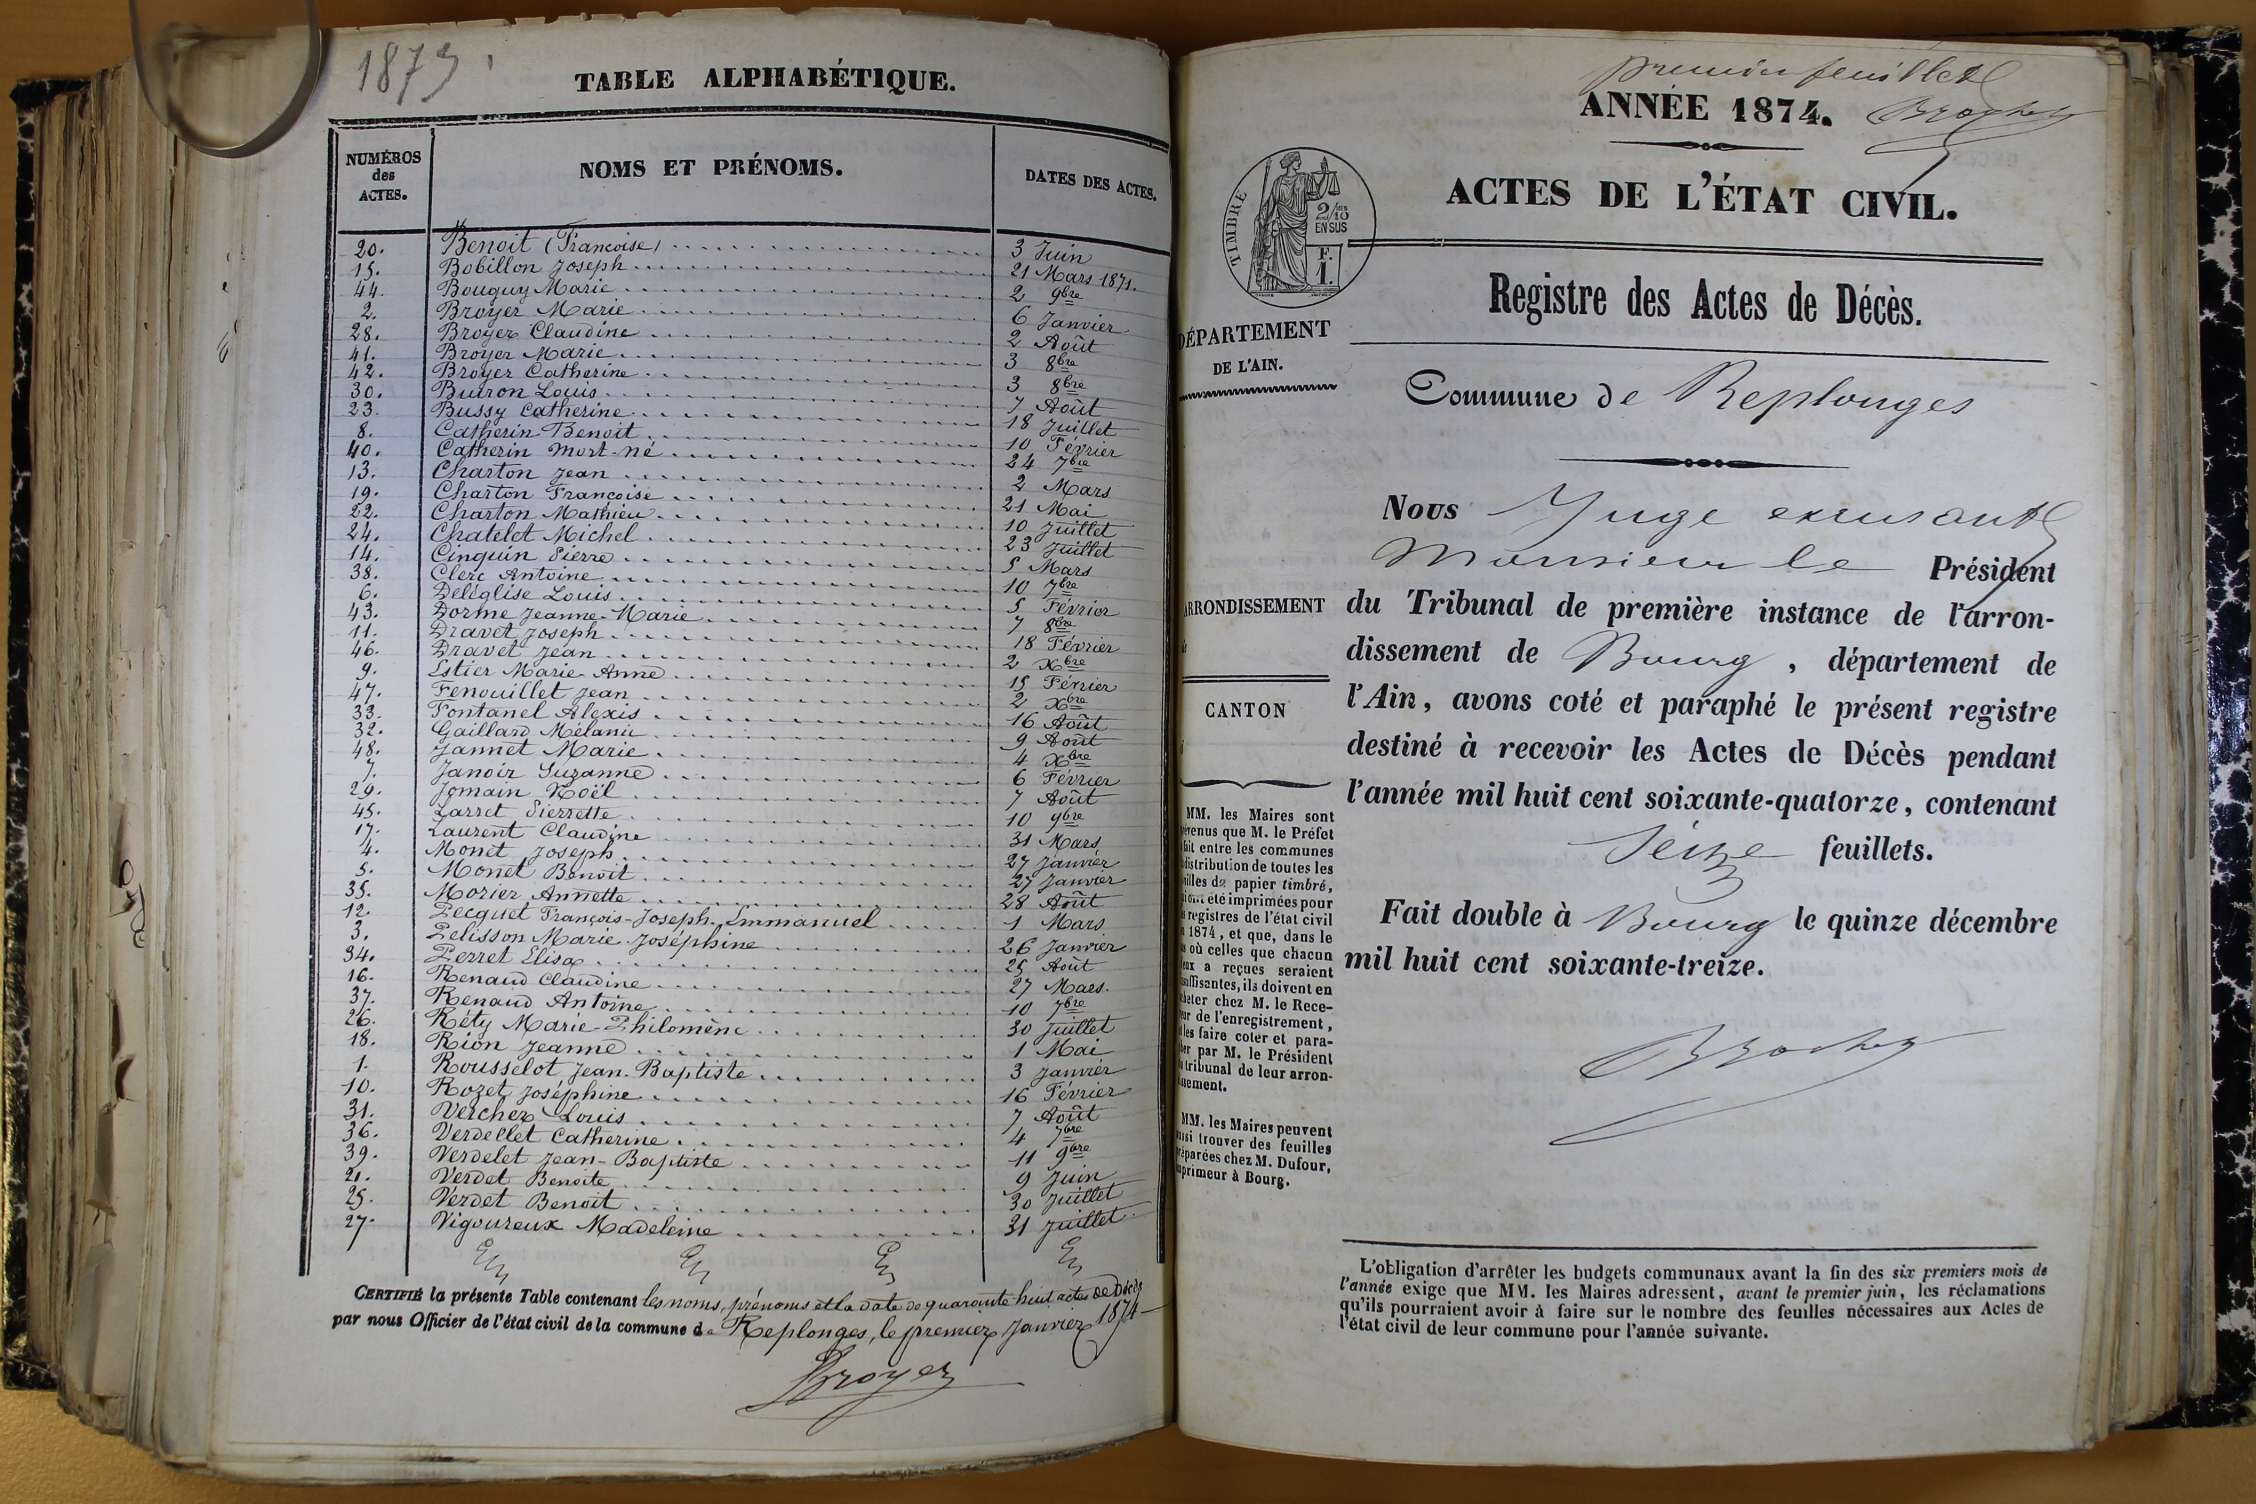 1873
TABLE ALPHABÉTIQUE.
NUMÉROS des ACTES. NOMS ET PRÉNOMS. DATES DES ACTES.
20. Benoit (Françoise) 3 Juin
15. Bobillon Joseph 21 Mars 1871.
44. Bouguy Marie 2 9bre
2. Broyer Marie 6 Janvier
28. Broyer Claudine 2 Août
41. Broyer Marie 3 8bre
42. Broyer Catherine 3 8bre
30. Buiron Louis 7 Août
23. Bussy Catherine 18 Juillet
8. Catherin Benoit 10 Février
40. Catherin Mort-né 24 7bre
13. Charton Jean 2 Mars
19. Charton Françoise 21 Mai
22. Charton Mathieu 10 Juillet
24. Chatelet Michel 23 Juillet
14. Cinquin Pierre 5 Mars
38. Clerc Antoine 10 7bre
6. Deléglise Louis 5 Février
43. Dorme Jeanne-Marie 7 8bre
11. Dravet Joseph 18 Février
46. Dravet Jean 2 Xbre
9. Estier Marie-Anne 15 Février
47. Fenouillet Jean 2 Xbre
33. Fontanel Alexis 16 Août
32. Gaillard Mélanie 9 Août
48. Jannet Marie 4 Xbre
7. Janoir Suzanne 6 Février
29. Jomain Noël 7 Août
45. Larret Pierrette 10 9bre
17. Laurent Claudine 31 Mars
4. Monet Joseph 27 Janvier
5. Monet Benoit 27 Janvier
35. Morier Annette 28 Août
12. Pecquet François-Joseph-Emmanuel 1 Mars
3. Pelisson Marie-Joséphine 26 Janvier
34. Perret Elisa 25 Août
16. Renaud Claudine 27 Mars.
37. Renaud Antoine 10 7bre
26. Réty Marie-Philomène 30 Juillet
18. Rion Jeanne 1 Mai
1. Rousselot Jean-Baptiste 3 Janvier
10. Rozet Joséphine 16 Février
31. Vercher Louis 7 Août
36. Verdellet Catherine 4 7bre
39. Verdelet Jean-Baptiste 11 9bre
21. Verdet Benoite 9 Juin
25. Verdet Benoit 30 Juillet
27. Vigoureux Madeleine 31 Juillet
CERTIFIÉ la présente Table contenant les noms, prénoms et la date de quarante huit actes de Décès
par nous Officier de l'état civil de la commune de Replonges, le premier Janvier 1874
Broyer
premier feuillet
ANNÉE 1874. Brochet
ACTES DE L'ÉTAT CIVIL.
TIMBRE
2/10 EN SUS
F. 1.
Registre des Actes de Décès.
DÉPARTEMENT
DE L'AIN.
Commune de Replonges
ARRONDISSEMENT
CANTON
Nous Juge excusant
Monsieur le Président
du Tribunal de première instance de l'arron-
dissement de Bourg, département de
l'Ain, avons coté et paraphé le présent registre
destiné à recevoir les Actes de Décès pendant
l'année mil huit cent soixante-quatorze, contenant
Seize feuillets.
Fait double à Bourg le quinze décembre
mil huit cent soixante-treize.
Brochet
MM. les Maires sont
prévenus que M. le Préfet
fait entre les communes
distribution de toutes les
feuilles de papier timbré,
été imprimées pour
registres de l'état civil
1874, et que, dans le
où celles que chacun
eux a reçues seraient
insuffisantes, ils doivent en
acheter chez M. le Rece-
veur de l'enregistrement,
les faire coter et para-
pher par M. le Président
tribunal de leur arron-
dissement.
MM. les Maires peuvent
aussi trouver des feuilles
préparées chez M. Dufour,
imprimeur à Bourg.
L'obligation d'arrêter les budgets communaux avant la fin des six premiers mois de
l'année exige que MM. les Maires adressent, avant le premier juin, les réclamations
qu'ils pourraient avoir à faire sur le nombre des feuilles nécessaires aux Actes de
l'état civil de leur commune pour l'année suivante.